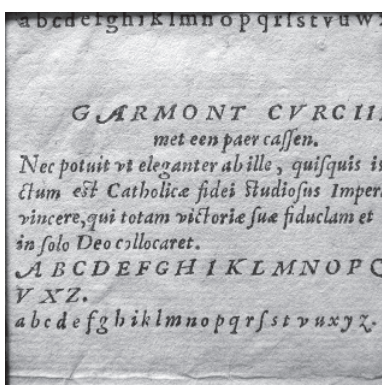 abcdefghiklmnopqrſstvuw
GARMONT CVRCII
met een paer caſſen.
Nec potuit vt eleganter ab ille, quiſquis is
ctum eſt Catholicæ fidei ſtudioſus Imper
vincere, qui totam victoriæ ſuæ fiduclam et
in ſolo Deo collocaret.
ABCDEFGHIKLMNOPQ
VXZ.
abcdefghiklmnopqrſstvuxyz.